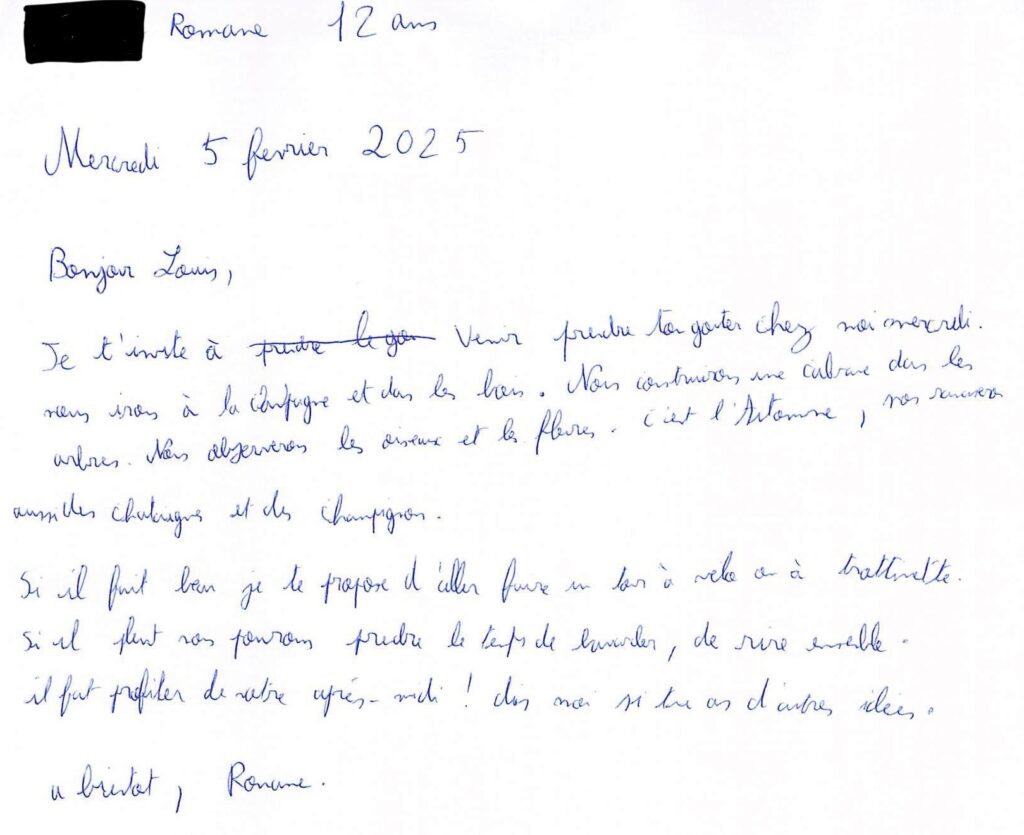 Romane 12 ans
Mercredi 5 fevrier 2025
Bonjour Louis,
Je t'invite à prendre le gou Venir prendre ton gouter chez moi mercredi.
nous irons à la campagne et dans les bois. Nous construirons une cabane dans les
arbres. Nous observerons les oiseaux et les fleurs. c'est l'Automne, nous ramasserons
aussi des chataignes et des champignons.
Si il fait beau je te propose d'aller faire un tour à velo ou à trottinette.
Si il pleut nous pourrons prendre le temps de bavarder, de rire ensemble.
il faut profiter de notre après-midi ! dis moi si tu as d'autres idées.
a bientot, Romane.